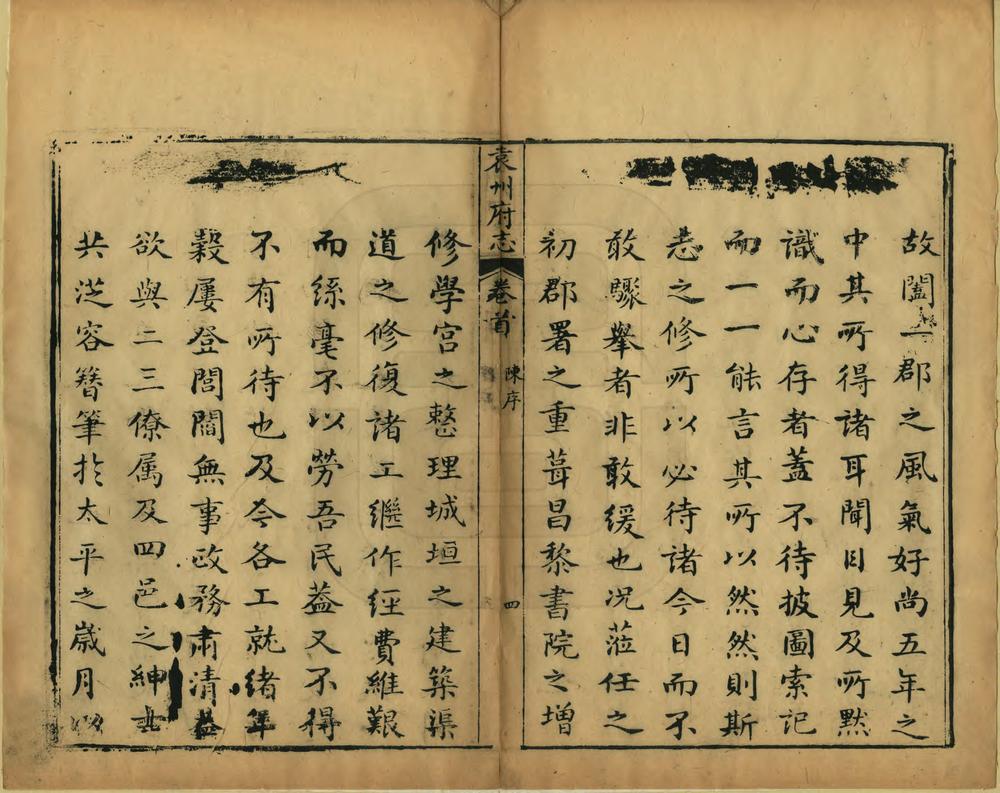 故闔一郡之風氣好尚五年之
中其所得諸耳聞目見及所默
識而心存者蓋不待披圖索記
而一一能言其所以然然則斯
志之修所以必待諸今日而不
敢驟舉者非敢緩也况蒞任之
初郡署之重葺昌黎書院之增
袁州府志
卷首
陳序
四
修學宮之整理城垣之建築渠
道之修復諸工繼作經費維艱
而絲毫不以勞吾民葢又不得
不有所待也及今各工就緒年
穀屢登閭閻無事政務肅清葢
欲與二三僚属及四邑之紳士
共從容簪筆扵太平之歲月以